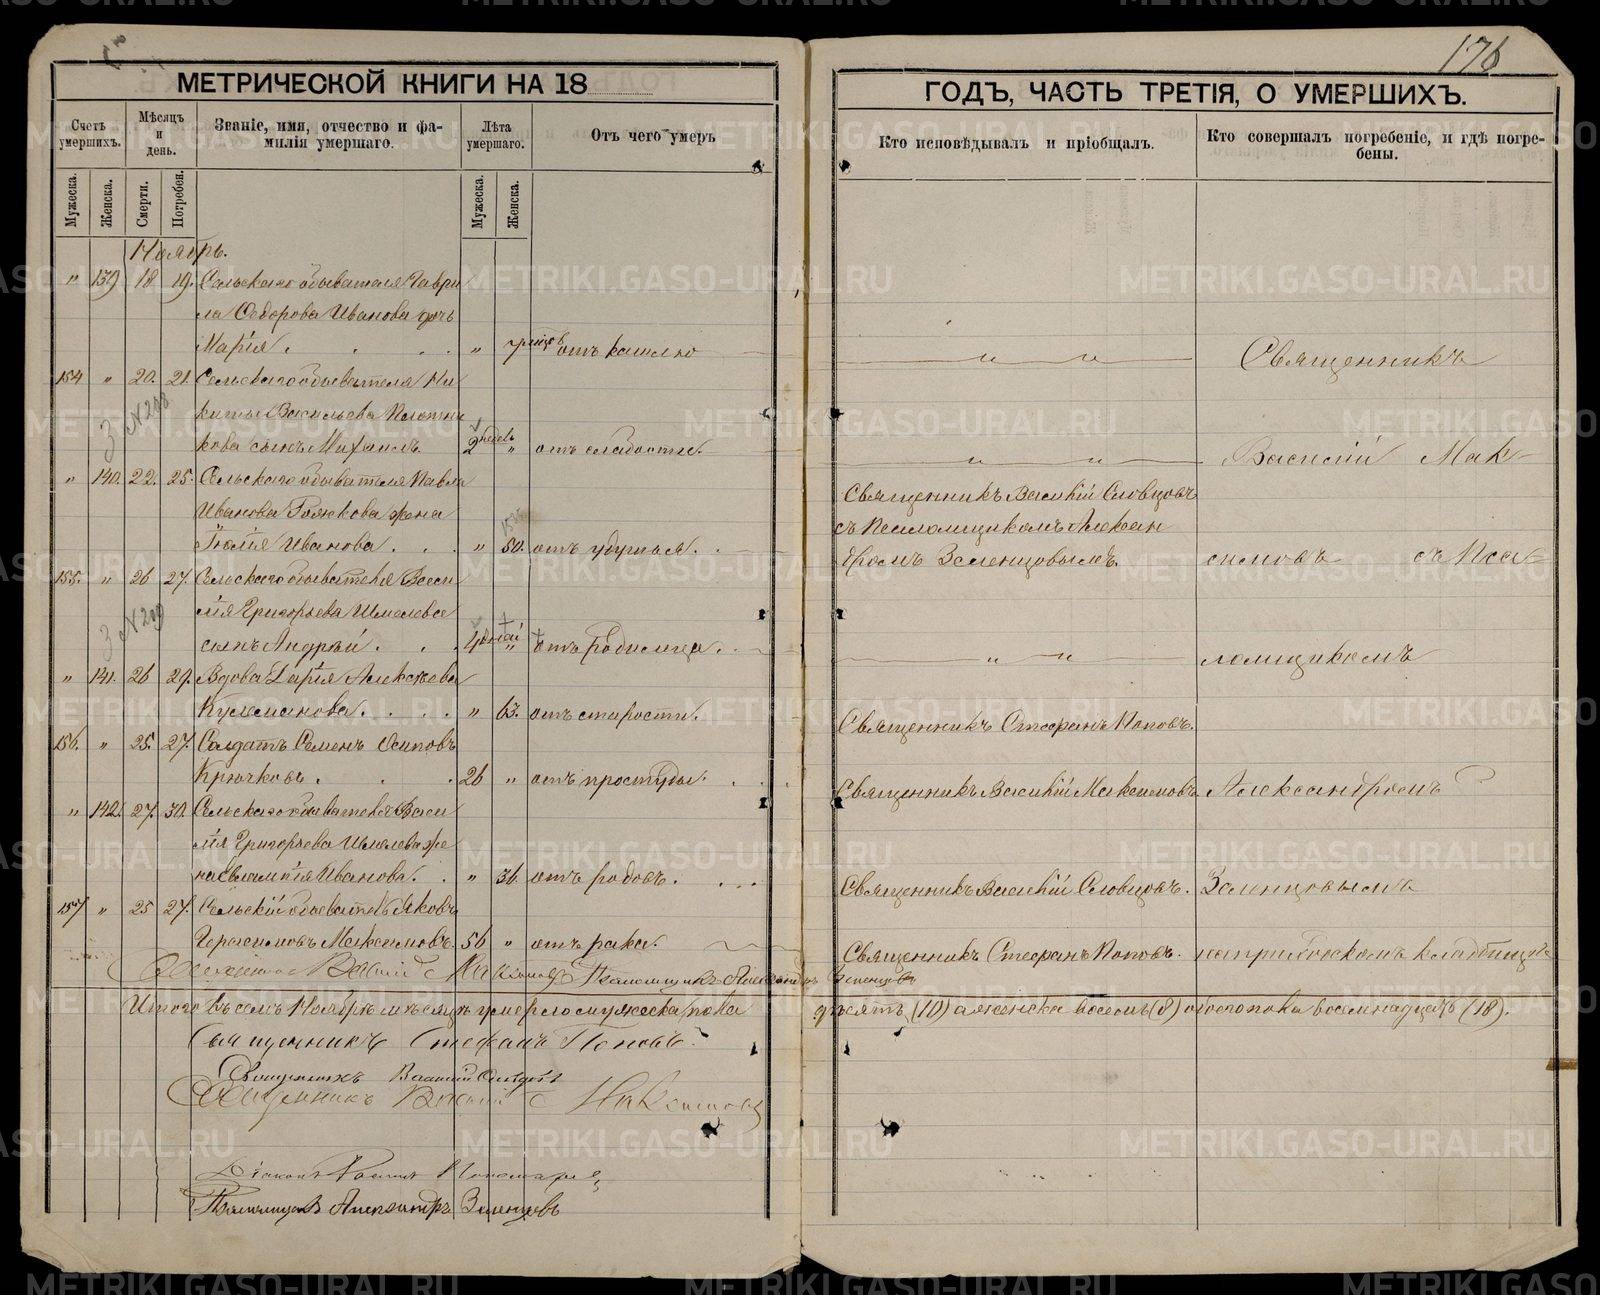 176
МЕТРИЧЕСКОЙ КНИГИ НА 18
Счетъ умершихъ.
Мѣсяцъ и день.
Званіе, имя, отчество и фа-
милія умершаго.
Лѣта умершаго.
Отъ чего умеръ
Мужеска.
Женска.
Смерти.
Погребен.
Мужеска.
Женска.
Ноябрь.
" 139 18 19. Сельскаго обывателя Гаври
ла Федорова Иванова дочь
Марія . . . . " отъ кашлю
154 " 20. 21. Сельскаго обывателя Ни
киты Васильева Плотни
кова сынъ Михаилъ. 2 недель " отъ слабости.
З № 208
" 140. 22. 25. Сельскаго обывателя Павла
Иванова жена
Иванова . . . " 50. отъ удушья. .
155. " 26 27. Сельскаго обывателя Васи
лія Григорьева Шмелева
сынъ Андрей . . . 4 дней " отъ родимца. .
З № 209
" 141. 26 29. Вдова Дарія Алексѣева
. . . . " 63. отъ старости.
156. " 25. 27. Солдатъ Семенъ Осиповъ
Крючковъ . . . 26 " отъ простуды. . .
" 142. 27. 30. Сельскаго обывателя Васи
лія Григорьева Шмелева же
на Евлампія Иванова. . " 36. отъ родовъ. . . .
157 " 25 27. Сельскій обыватель Яковъ
Герасимовъ Максимовъ. 56 " отъ рака.
Священникъ Василій Максимовъ Псаломщикъ Александръ Зеленцовъ
Итого въ семъ Ноябрѣ мѣсяцѣ умерло мужеска пола
Священникъ Стефанъ Поповъ.
Священникъ Василій Словцовъ
Священникъ Василій Максимовъ
Діаконъ
Псаломщикъ Александръ Зеленцовъ
ГОДЪ, ЧАСТЬ ТРЕТІЯ, О УМЕРШИХЪ.
Кто исповѣдывалъ и пріобщалъ.
Кто совершалъ погребеніе, и гдѣ погре-
бены.
" " Священникъ
" " Василій Мак
Священникъ Василій Словцовъ
съ Псаломщикомъ Алексан
дромъ Зеленцовымъ. симовъ съ Пса
" " ломщикомъ
Священникъ Стефанъ Поповъ.
Священникъ Василій Максимовъ Александромъ
Священникъ Василій Словцовъ. Зеленцовымъ
Священникъ Стефанъ Поповъ. на приходскомъ кладбищѣ
десять (10) а женска восемь (8) обоего пола восемнадцать (18).
METRIKI.GASO-URAL.RU